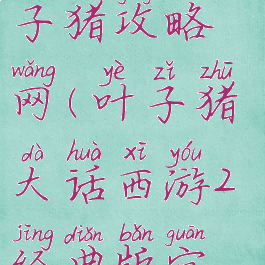 子猪攻略
wǎng yè zǐ zhū
网(叶子猪
dà huà xī yóu
大话西游2
jīng diǎn bǎn guān
经典版官